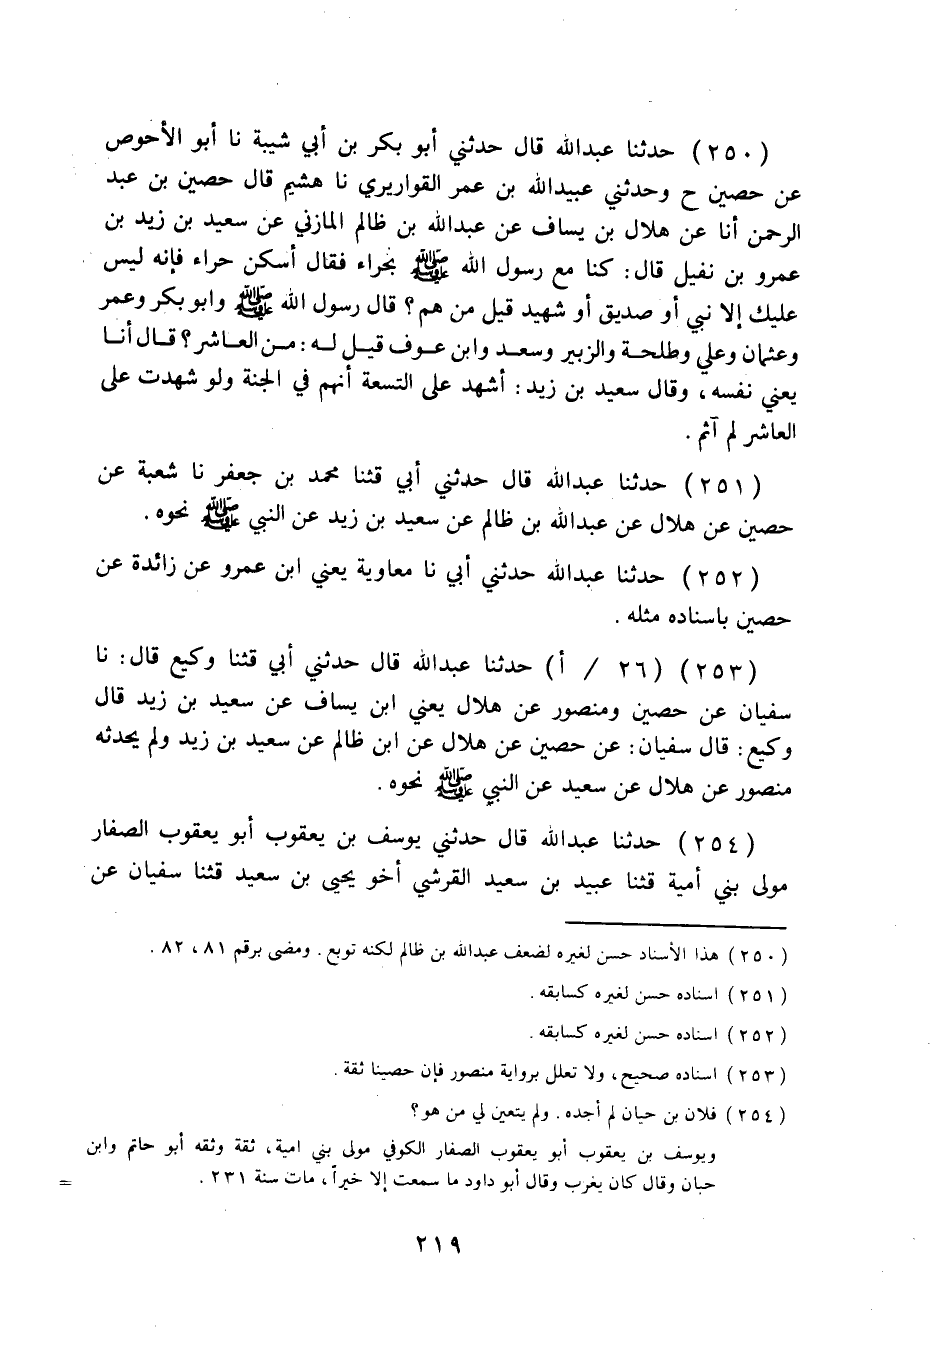 (٢٥٠) حدثنا عبدالله قال حدثني أبو بكر بن أبي شيبة نا أبو الأحوص
عن حصين ح وحدثني عبيدالله بن عمر القواريري نا هشيم قال حصين بن عبد
الرحمن أنا عن هلال بن يساف عن عبدالله بن ظالم المازني عن سعيد بن زيد بن
عمرو بن نفيل قال: كنا مع رسول الله ﷺ بحراء فقال أسكن حراء فإنه ليس
عليك إلا نبي أو صديق أو شهيد قيل من هم؟ قال رسول الله ﷺ وابو بكر وعمر
وعثمان وعلي وطلحة والزبير وسعد وابن عوف قيل له: من العاشر؟ قال أنا
يعني نفسه، وقال سعيد بن زيد: أشهد على التسعة أنهم في الجنة ولو شهدت على
العاشر لم آثم.
(٢٥١) حدثنا عبدالله قال حدثني أبي قثنا محمد بن جعفر نا شعبة عن
حصين عن هلال عن عبدالله بن ظالم عن سعيد بن زيد عن النبي ﷺ نحوه.
(٢٥٢) حدثنا عبدالله حدثني أبي نا معاوية يعني ابن عمرو عن زائدة عن
حصين باسناده مثله.
(٢٥٣) (٢٦ / أ) حدثنا عبدالله قال حدثني أبي قثنا وكيع قال: نا
سفيان عن حصين ومنصور عن هلال يعني ابن يساف عن سعيد بن زيد قال
وكيع: قال سفيان: عن حصين عن هلال عن ابن ظالم عن سعيد بن زيد ولم يحدثه
منصور عن هلال عن سعيد عن النبي ﷺ نحوه.
(٢٥٤) حدثنا عبدالله قال حدثني يوسف بن يعقوب أبو يعقوب الصفار
مولى بني أمية قثنا عبيد بن سعيد القرشي أخو يحيى بن سعيد قثنا سفيان عن
(٢٥٠) هذا الأسناد حسن لغيره لضعف عبدالله بن ظالم لكنه توبع. ومضى برقم ٨١، ٨٢.
(٢٥١) اسناده حسن لغيره كسابقه.
(٢٥٢) اسناده حسن لغيره كسابقه.
(٢٥٣) اسناده صحيح، ولا تعلل برواية منصور فإن حصينا ثقة.
(٢٥٤) فلان بن حيان لم أجده. ولم يتعين لي من هو؟
ويوسف بن يعقوب أبو يعقوب الصفار الكوفي مولى بني امية، ثقة وثقه أبو حاتم وابن
حبان وقال كان يغرب وقال أبو داود ما سمعت إلا خيراً، مات سنة ٢٣١. =
٢١٩